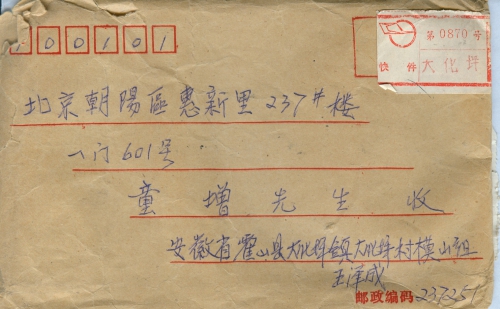 100101
第0870号
快件 大化坪
北京朝陽區惠新里237#楼
一门601号
童增先生收
安徽省霍山县大化坪镇大化坪村模山组
王泽成
邮政编码 237251